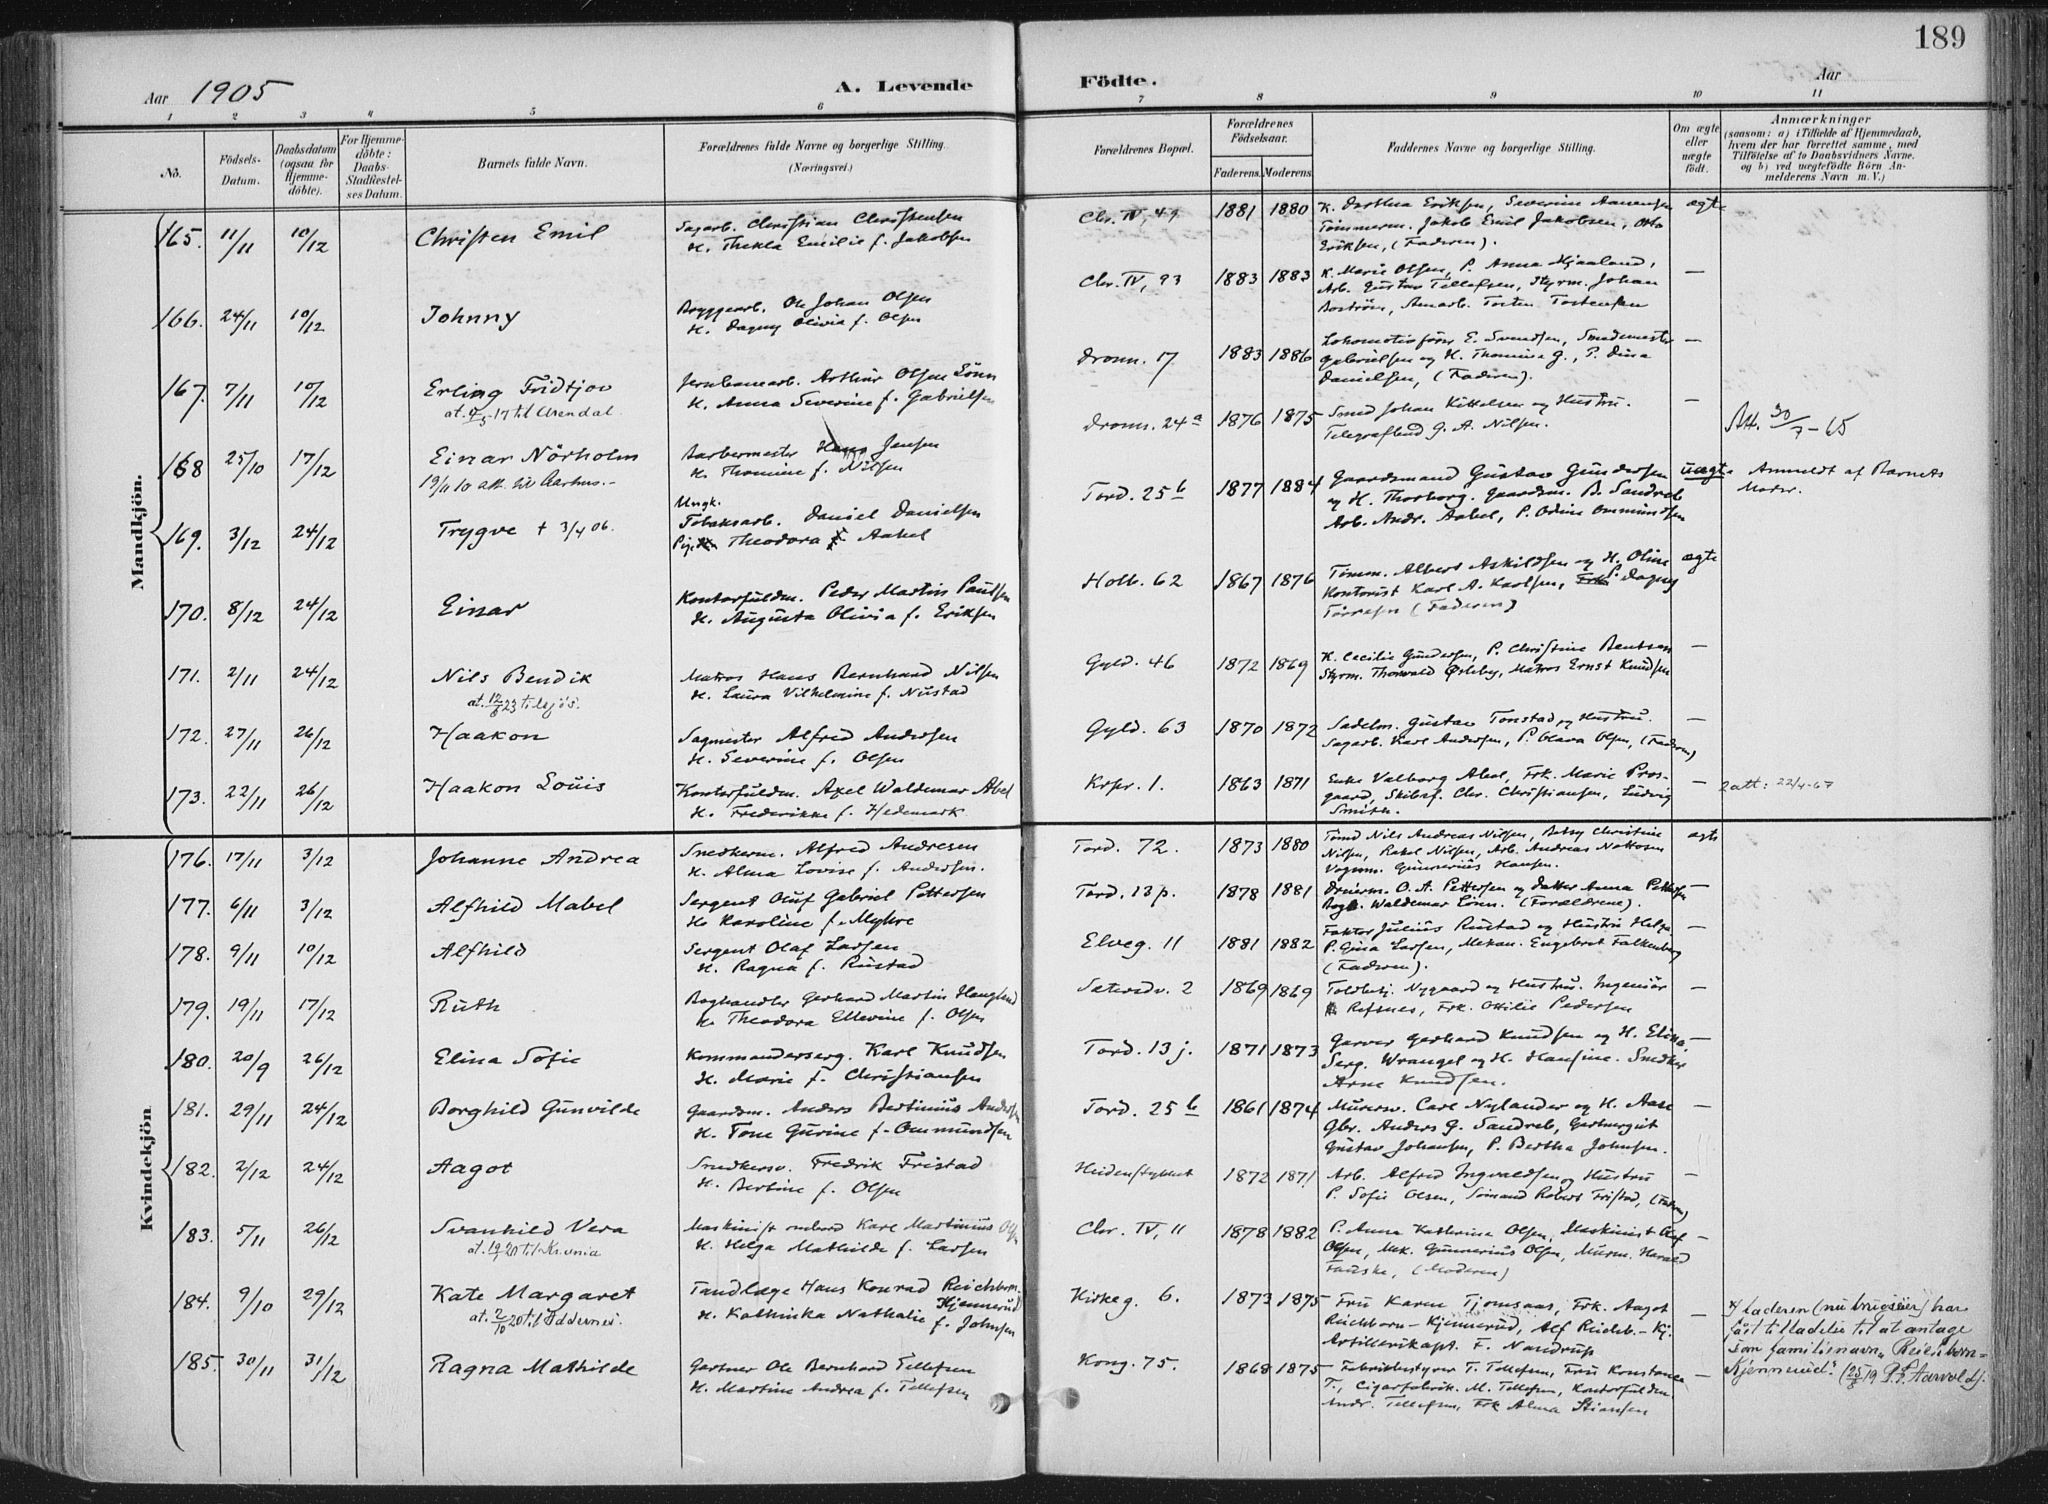 189
Aar 1905
A. Levende
Födte.
Aar
1 2 3 4 5 6 7 8 9 10 11
No.
Födsels-
Datum.
Daabsdatum
(ogsaa for
Hjemme-
döbte).
For Hjemme-
döbte:
Daabs-
Stadfæstel-
ses Datum.
Barnets fulde Navn.
Forældrenes fulde Navne og borgerlige Stilling.
(Næringsvei.)
Forældrenes Bopæl.
Forældrenes
Födselsaar.
Faderens.
Moderens.
Faddernes Navne og borgerlige Stilling.
Om ægte
eller
uægte
födt.
Anmærkninger
(saasom: a) i Tilfælde af Hjemmedaab,
hvem der har forrettet samme, med
Tilföielse af to Daabsvidners Navne.
og b) ved uægtefödte Börn An-
melderens Navn m. V.)
Mandkjön.
165. 11/11 10/12 Christen Emil
Sagarb. Christian Christensen
H. Thekla Emilie f. Jakobsen
Chr. IV, 49 1881 1880
K. Dorthea Eriksen, Severine Aanensen
Tömmerm. Jakob Emil Jakobsen, Otto
Eriksen, (Faderen).
ægte
166. 24/11 10/12 Johnny
Bryggearb. Ole Johan Olsen
H. Dagny Olivia f. Olsen
Chr. IV, 93 1883 1883
K. Marie Olsen, P. Anna Mjaaland,
Arb. Gustav Tellefsen, Styrm. Johan
Boström, Arb. Torsten Torstensen
—
167. 7/11 10/12 Erling Fridtjov
at. 4/5-17 til Arendal.
Jernbanearb. Arthur Olsen Lönn
H. Anna Severine f. Gabrielsen
Dronn. 17 1883 1886
Lokomotivförer E. Svendsen, Smedemester
Gabrielsen og H. Thomine G., P. Dina
Danielsen, (Faderen).
—
168 25/10 17/12 Einar Nörholm
19/11 10 att. til Aarhus.-
Barbermester Jensen
H. Thomine f. Nilsen
Dronn. 24a 1876 1875
Smed Johan Kittelsen og Hustru.
Telegrafbud G. A. Nilsen.
—
Att. 30/7-65
169. 3/12 24/12 Trygve + 3/4 06.
Ungk.
Tobaksarb. Daniel Danielsen
Pige Theodora Aabel
Tord. 25b 1877 1884
Gaardsmand Gustav Gundersen
og H. Thorborg. Gaardsm. B. Sandreb
Arb. Andr. Aabel, P. Odine Ommundsen
uægte
Anmeldt af Barnets
Moder.
170. 8/12 24/12 Einar
Kontorfuldm. Peder Martin Paulsen
H. Augusta Olivia f. Eriksen
Holb. 62 1867 1876
Tömm. Albert Askildsen og H. Oline
Kontorist Karl A. Karlsen, P. Dagny
Torresen (Faderen)
ægte
171. 2/11 24/12 Nils Bendik
at. 12/8 23 til sjös.
Matros Hans Bernhard Nilsen
H. Laura Vilhelmine f. Nustad
Gyld. 46 1872 1869
K. Cecilie Gundersen, P. Christine Bentsen
Styrm. Thorwald Ösleby, Matros Ernst Knudsen
—
172. 27/11 26/12 Haakon
Sagmester Alfred Andersen
H. Severine f. Olsen
Gyld. 63 1870 1872
Sadelm. Gustav Tonstad og Hustru.
Sagarb. Karl Andersen, P. Olava Olsen, (Faderen)
—
173. 22/11 26/12 Haakon Louis
Kontorfuldm. Axel Waldemar Abel
H. Frederikke f. Hedemark
Krpr. 1. 1863 1871
Enke Valborg Abel, Frk. Marie Pros-
gaard, Skibsf. Chr. Christiansen, Ludvig
Smith.
—
att: 22/4-67
Kvindekjön.
176. 17/11 3/12 Johanne Andrea
Snedkerm. Alfred Andresen
H. Alma Lovise f. Andersen.
Tord. 72. 1873 1880
Tömd Nils Andreas Nilsen, Betsy Christine
Nilsen, Rakel Nilsen, Arb. Andreas Nottosen
Vognm. Gunnerius Hansen.
ægte
177. 6/11 3/12 Alfhild Mabel
Sergent Oluf Gabriel Pettersen
H. Karoline f. Myhre
Tord. 13 p. 1878 1881
Dreierm. O. A. Pettersen og datter Anna Pettersen
Bogb. Waldemar Lönn. (Forældrene).
—
178. 9/11 10/12 Alfhild
Sergent Olaf Larsen
H. Ragna f. Rustad
Elveg. 11 1881 1882
Faktor Julius Rustad og Hustru Helga.
P. Gina Larsen, Mekan. Engebret Falkenberg
(Faderen).
—
179. 19/11 17/12 Ruth
Boghandler Gerhard Martin Haugland
H. Theodora Ellevine f. Olsen
Sætersdv. 2 1869 1869
Toldbetj. Nygaard og Hustru. Ingeniör
Refsnes, Frk. Ottilie Pedersen
—
180. 20/9 26/12 Elina Sofie
Kommandersserg. Karl Knudsen
H. Marie f. Christiansen
Tord. 13 j. 1871 1873
Garver Gerhard Knudsen og H. Elina.
Serg. Wrangel og H. Hansine. Snedker
Arne Knudsen.
—
181. 29/11 24/12 Borghild Gunvilde
Gaardsm. Anders Bertinius Andersen
H. Tone Gurine f. Ommundsen
Tord. 25 b 1861 1874
Murersv. Carl Nylander og H. Aase
Gbr. Anders G. Sandreb, Garbergut
Gustav Johansen, P. Bertha Johnsen.
—
182. 2/12 24/12 Aagot
Snedkersv. Fredrik Fristad
H. Bertine f. Olsen
Heidenstykket 1872 1871
Arb. Alfred Ingvaldsen og Hustru
P. Sofie Olsen, Sömand Robert Fristad, (Faderen)
—
183. 5/11 26/12 Svanhild Vera
at. 19/1 20 til Kr.ania
Maskinist ombord Karl Martinius Olsen
H. Helga Mathilde f. Larsen
Chr. IV, 11 1878 1882
P. Anna Kathrina Olsen, Maskinist Olaf
Olsen, Mek. Gunnerius Olsen, Murm. Harald
Fauske, (Moderen)
—
184. 9/10 29/12 Kate Margaret
at. 2/10 20 til Oddernes.
Tandlæge Hans Konrad Reichborn-
Kjennerud
H. Kathinka Nathalie f. Johnsen
Kirkeg. 6. 1873 1875
Fru Karen Tjomsaas, Frk. Aagot
Reichborn-Kjennerud, Alf Reichb.-Kj.
Artillerikapt. F. Nandrup
—
x) Faderen (nu brugseier) har
fåt tilladelse til at antage
som familienavn „Reichborn-
Kjennerud". (25/8 19 P. P. Aarvold).
185. 30/11 31/12 Ragna Mathilde
Gartner Ole Bernhard Tellefsen
H. Martine Andrea f. Tellefsen
Kong. 75. 1868 1875
Fabrikbestyrer T. Tellefsen, Fru Konstance
T., Cigarfabrik. M. Tellefsen, Kontorfuldm.
Andr. Tellefsen, Frk Alma Stiansen
—